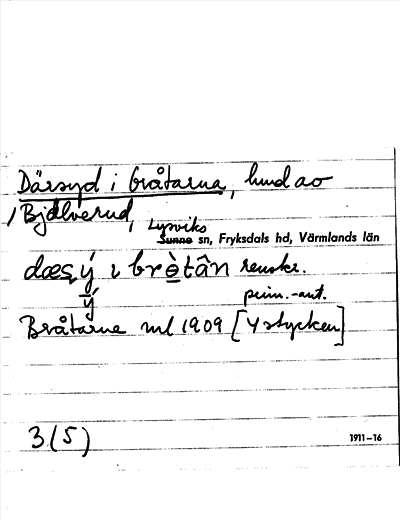 Därsyd i bråtarna, hmd av
Bjälverud,
Lysviks
Sunne sn, Fryksdals hd, Värmlands län
dæsý ı brètân renskr.
ý prim.-ant.
Bråtarne ml 1909 [4 stycken]
3 (5)
1911–16